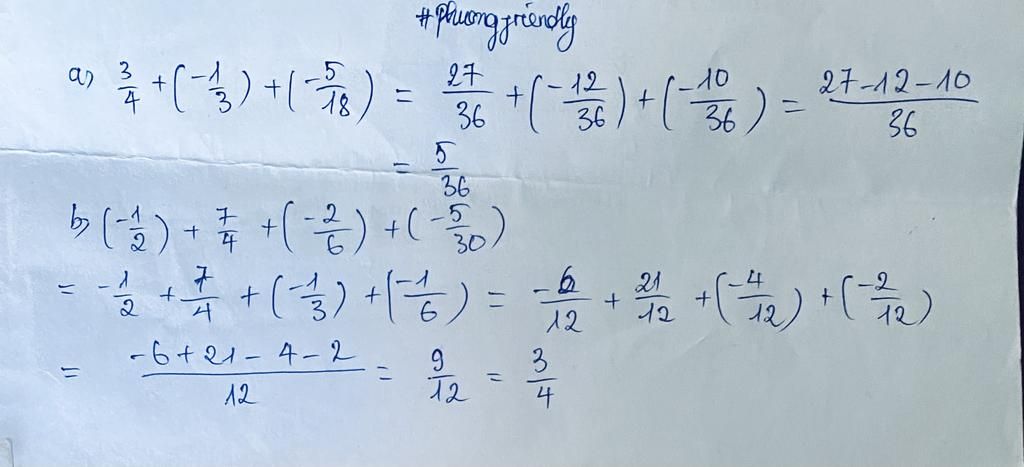 #phuongfriendly
a) 3/4 + (-1/3) + (-5/18) = 27/36 + (-12/36) + (-10/36) = (27-12-10)/36
= 5/36
b) (-1/2) + 7/4 + (-2/6) + (-5/30)
= -1/2 + 7/4 + (-1/3) + (-1/6) = -6/12 + 21/12 + (-4/12) + (-2/12)
= (-6+21-4-2)/12 = 9/12 = 3/4